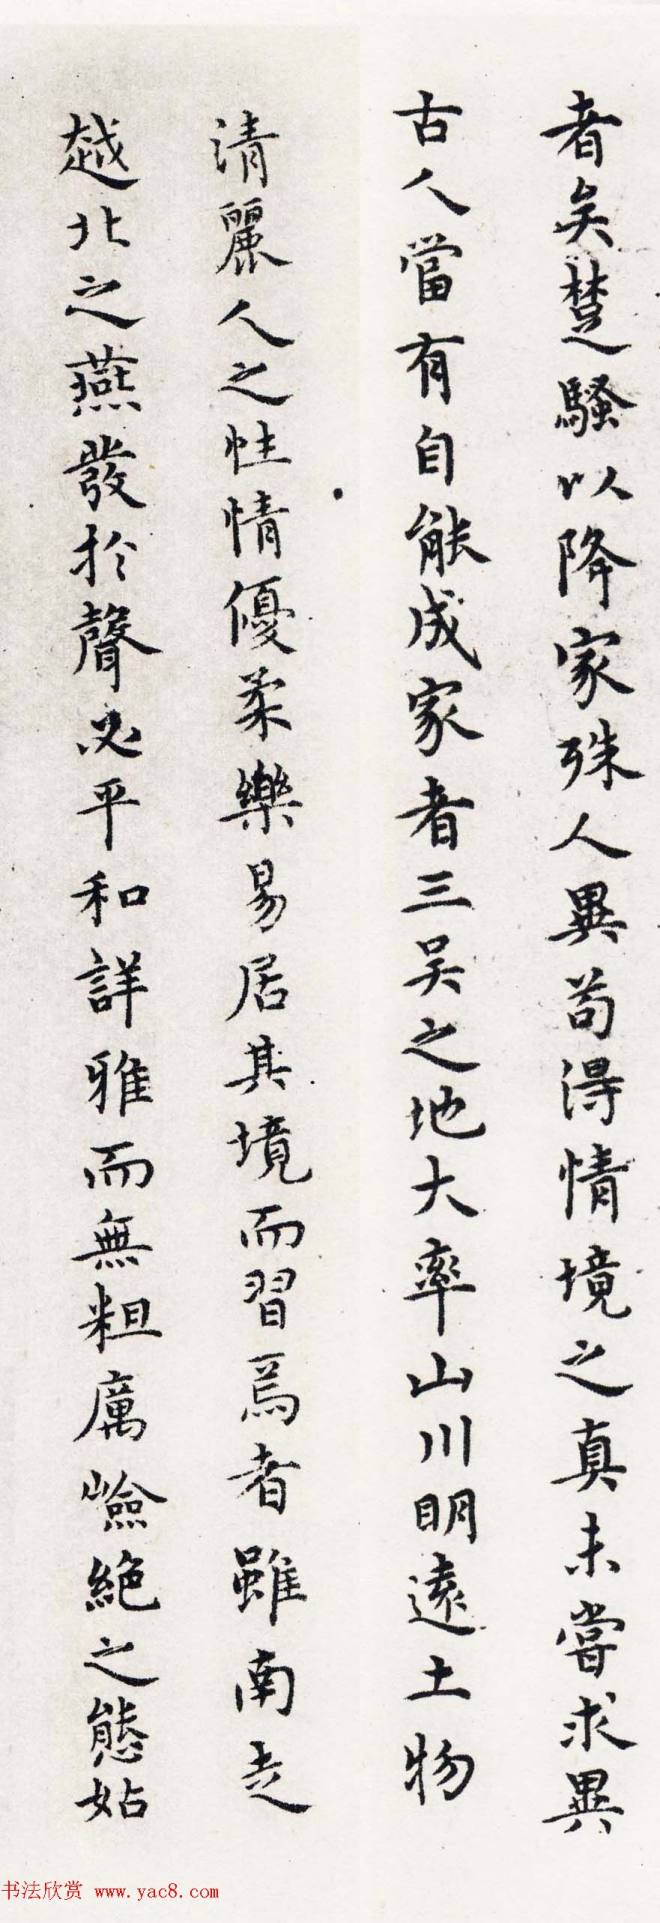 者矣楚騷以降家殊人異苟得情境之真未嘗求異
古人當有自能成家者三吴之地大率山川明遠土物
清麗人之性情優柔樂易居其境而習焉者雖南走
越北之燕發於聲必平和詳雅而無粗厲嶮絶之態姑
书法欣赏 www.yac8.com